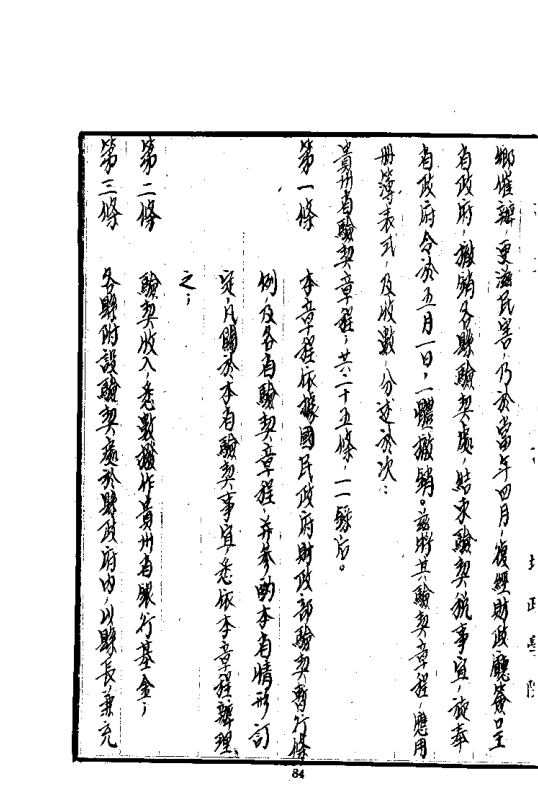 鄉催辦，更滋民害，乃於當年四月，復經財政廳簽呈
省政府，撤銷各縣驗契處，結束驗契稅事宜，旋奉
省政府令於五月一日，一體撤銷。茲將其驗契章程，應用
冊簿表式，及收數，分述於次：
貴州省驗契章程，共二十五條，一一錄后。
第一條　本章程依據國民政府財政部驗契暫行條
例，及各省驗契章程，并參酌本省情形訂
定，凡關於本省驗契事宜，悉依本章程辦理
之；
第二條　驗契收入，悉數撥作貴州省銀行基金；
第三條　各縣附設驗契處於縣政府內，以縣長兼充
84